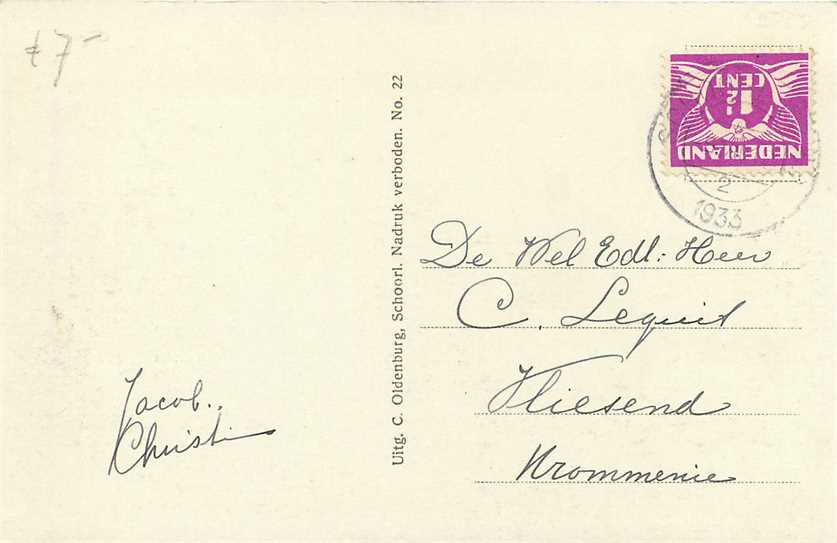 £ 7-
NEDERLAND
1½
CENT
2
1933
Uitg. C. Oldenburg, Schoorl. Nadruk verboden. No. 22
De Wel Edl: Heer
C. Lequit
Vliesend
Krommenie
Jacob.
Christi